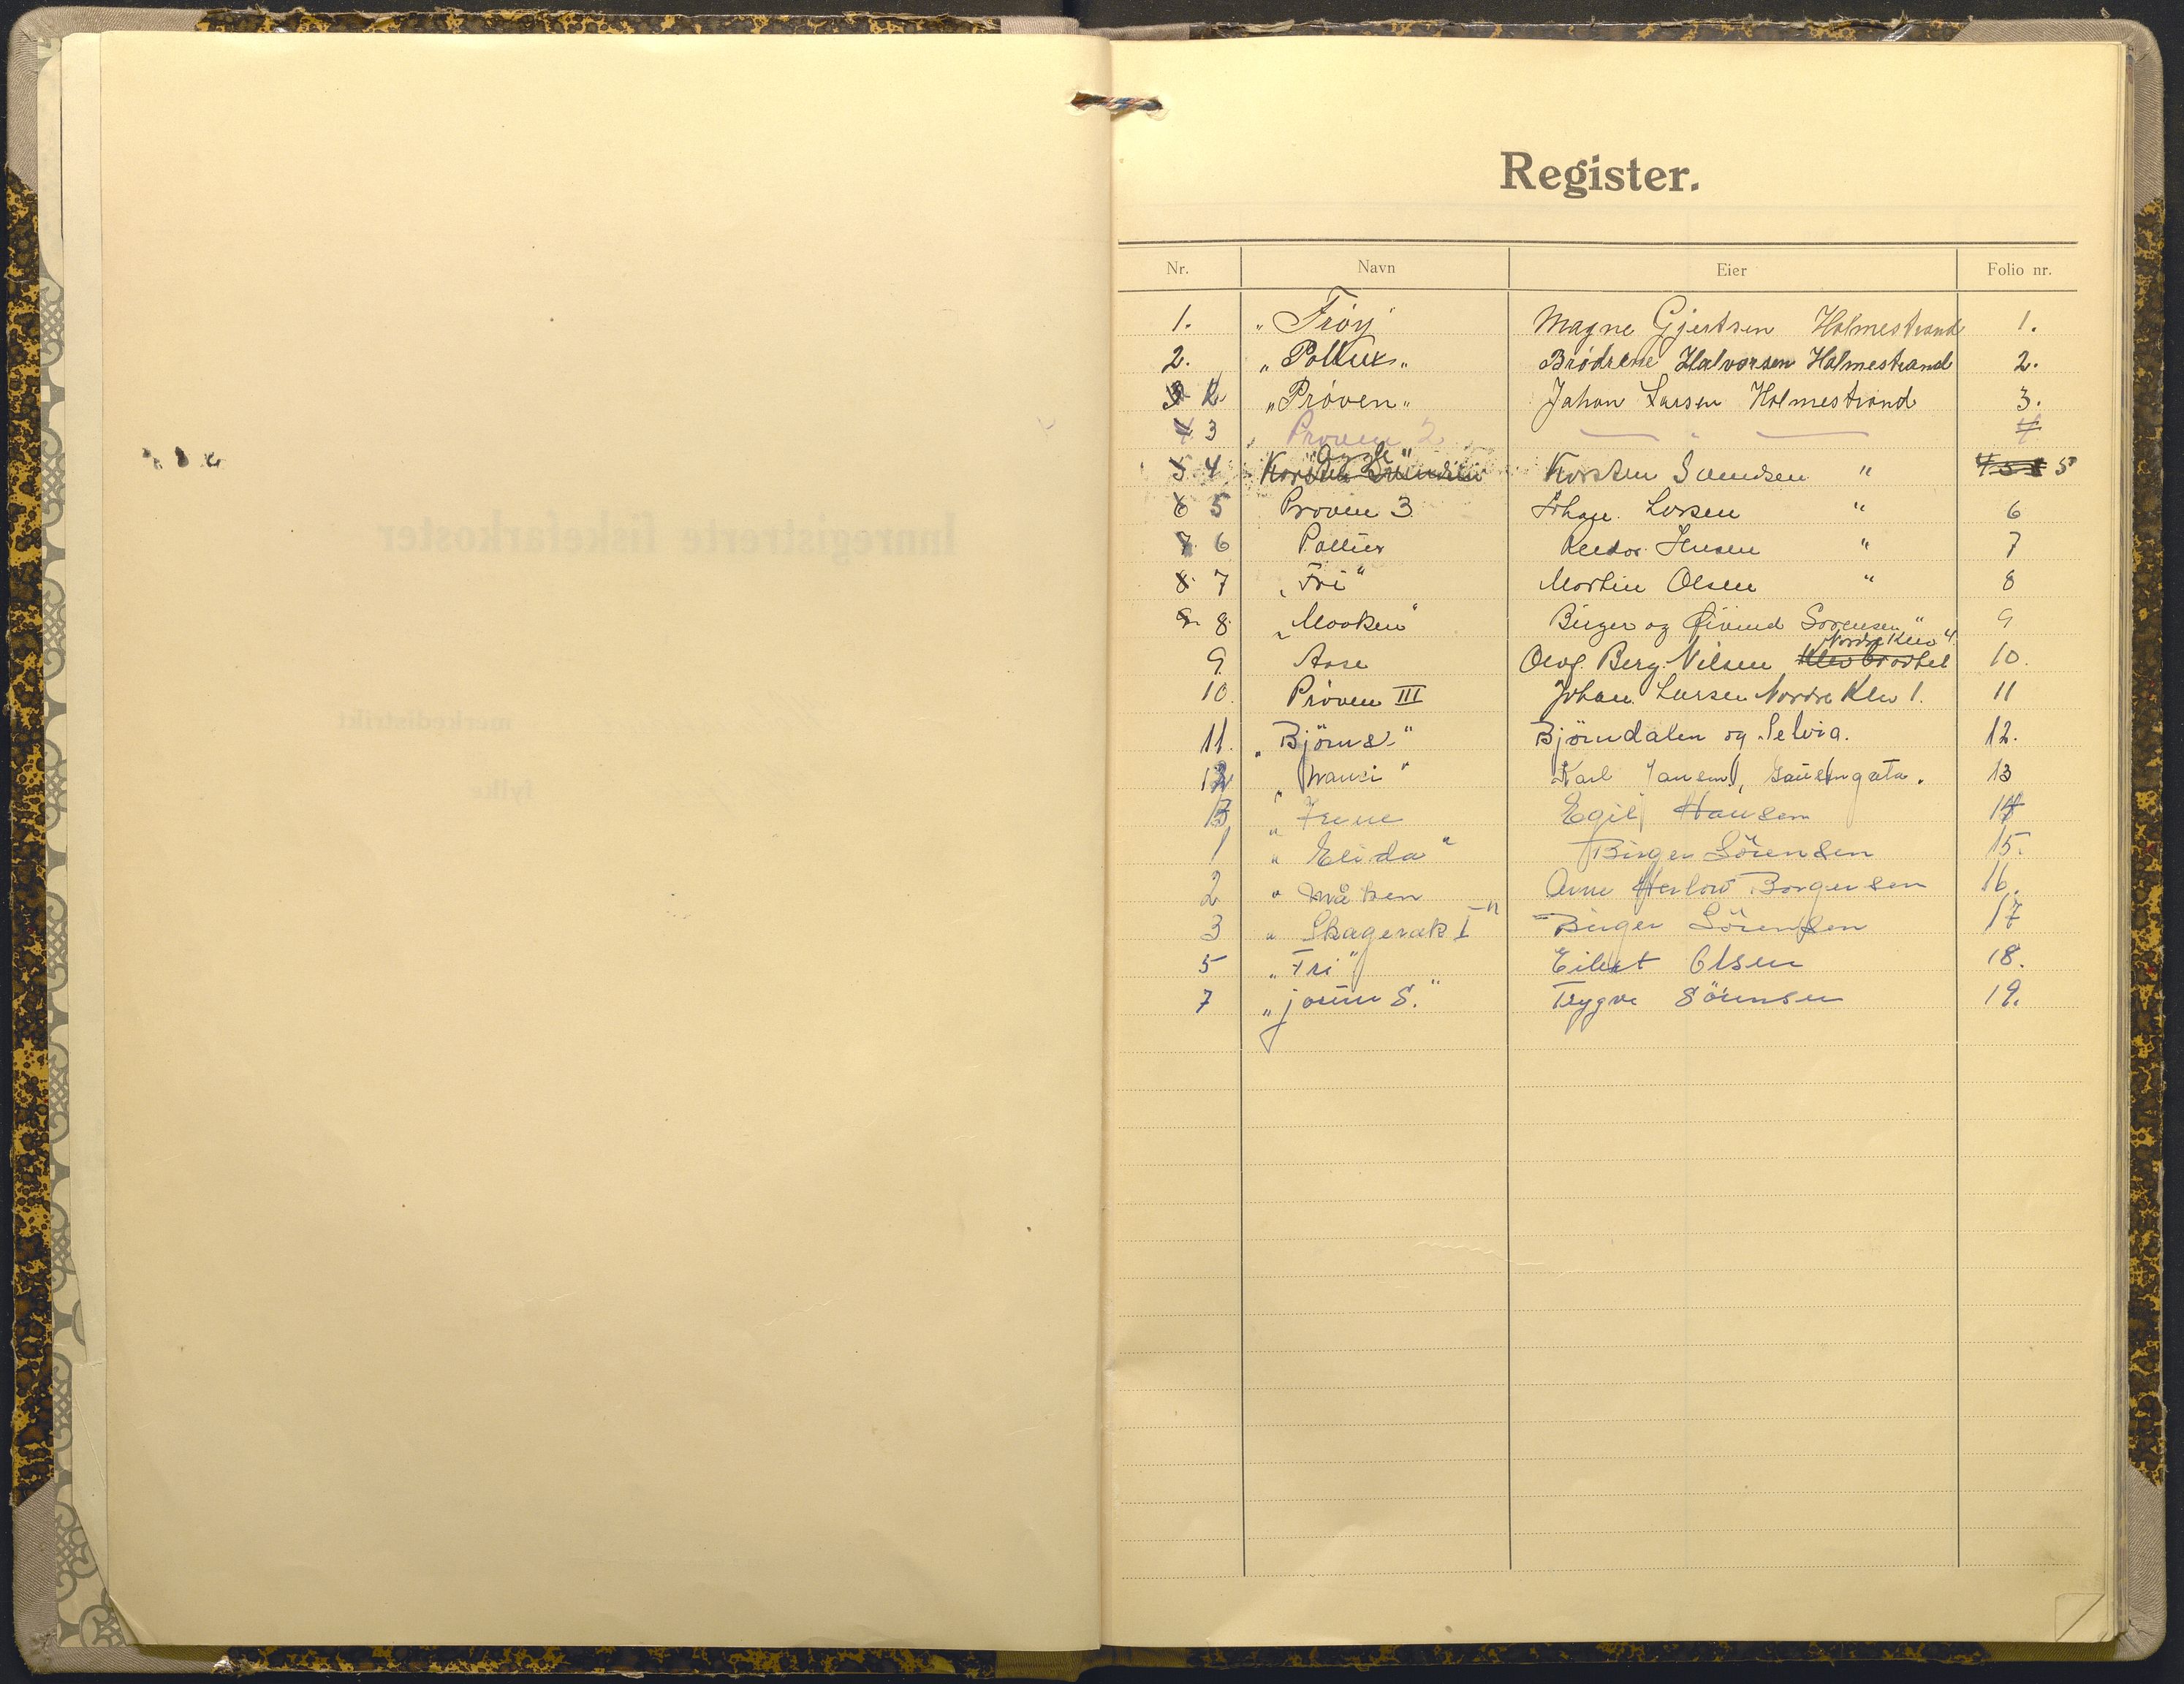 Register.
Nr. Navn Eier Folio nr.
1. "Frøy" Magne Gjertsen Holmestrand 1.
2. "Pollux" Brödrene Halvorsen Holmestrand 2.
3 2. "Prøven" Johan Larsen Holmestrand 3.
4 3 Prøven 2 — " — 4
5 4 Korsten Svendsen Korsten Svendsen " 5
6 5 Prøven 3 Johan Larsen " 6
7 6 Pollux Jensen " 7
8. 7 "Fri" Martin Olsen " 8
9. 8. "Mooken" Birger og Øivind Sørensen " 9
Nordre Klev 4
9. Aase Olof. Berg. Nilsen 10.
10. Prøven III Johan Larsen Nordre Klev 1. 11
11. "Björn S." Björndalen og Selvig. 12.
12 Karl Jansen, 13
13 "Irene Egil Hansen 14
1 "Elida" Birger Sörensen 15.
2 "Måken Arne Borgersen 16.
3 "Skagerak I" Birger Sörensen 17
5 "Fri" Eilert Olsen 18.
7 "Jorun S." Trygve Sörensen 19.
Innregistrerte fiskefarkoster
merkedistrikt
fylke